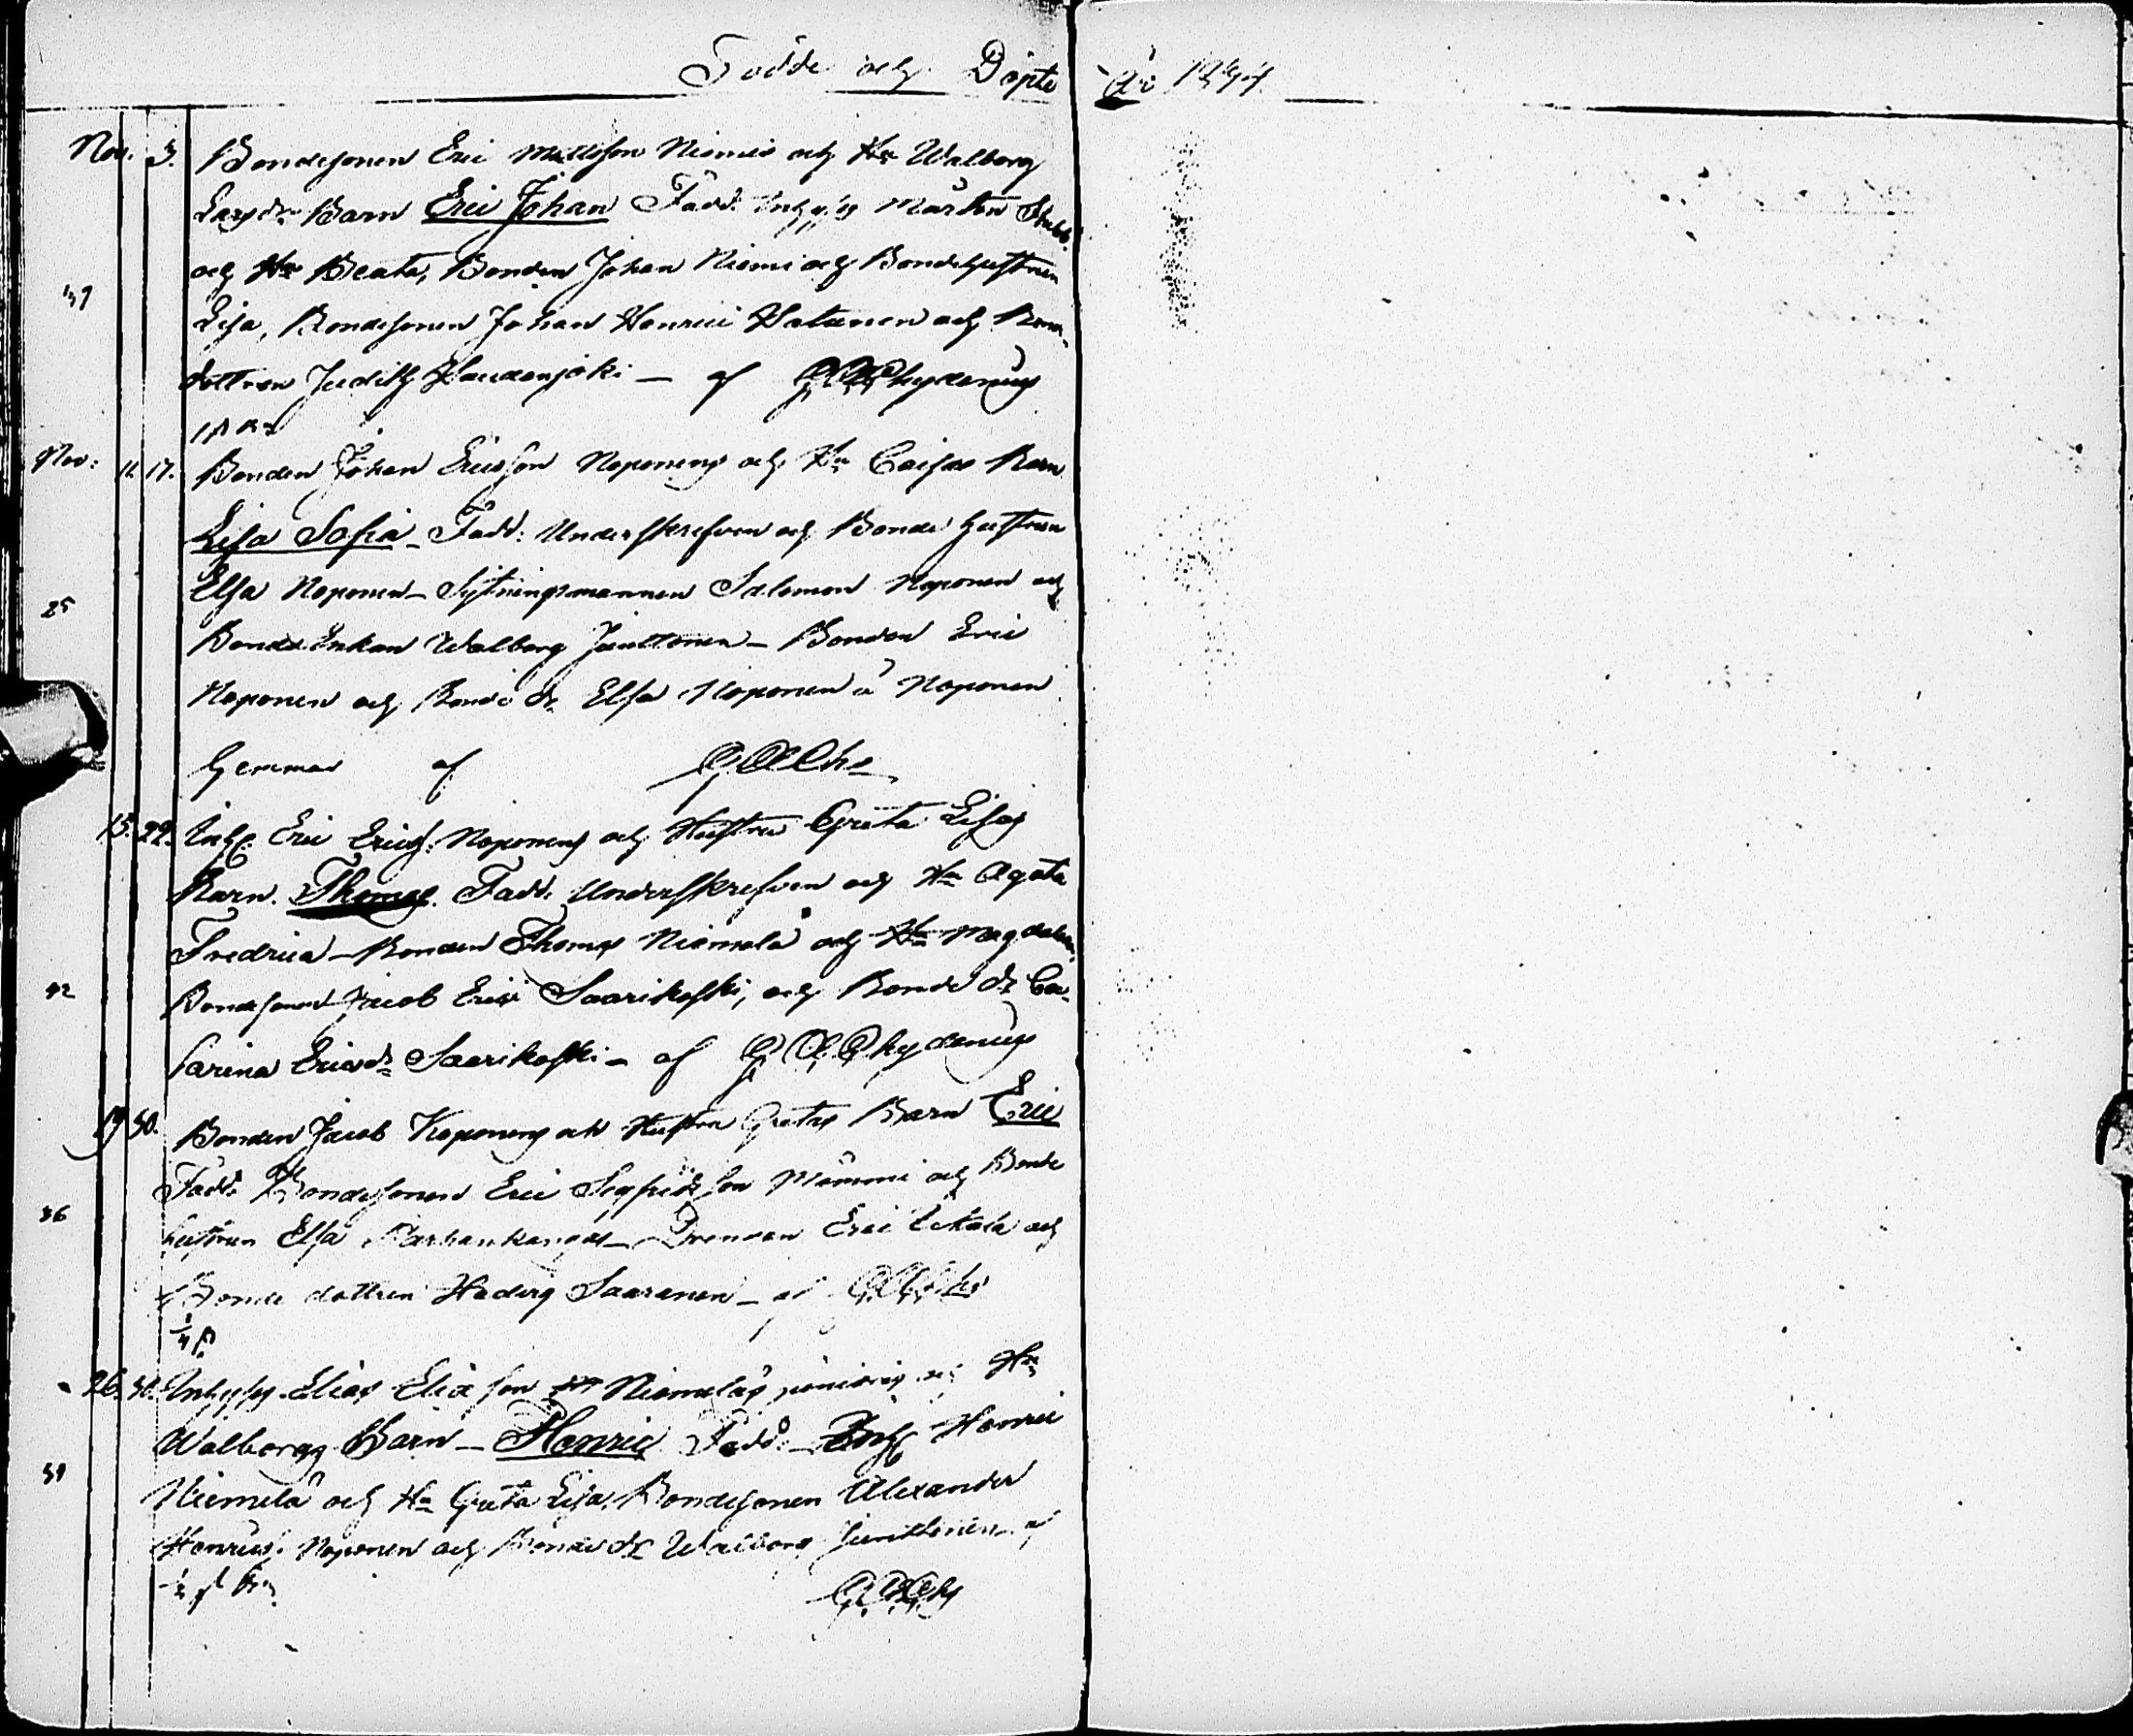 Födde och Döpte År
Nov. 3. Bondesonen Eric Mattsson Niemis och Hu Walborg
Larsdr Barn Eric Johan Fadd. Inhyses Mårten Stubb
och Hu Beata, Bonden Johan Niemi och Bondehustrun
Lisa, Bondesonen Johan Henrici och Bonde
dottren Judith Haudanjoki — af
Nov: 11. 17. Bonden Johan Ericsson Noponens och Hu Caisas Barn
Lisa Sofia – Fadd: Underskrefven och Bonde hustrun
25 Elsa Noponen – Sytningsmannen Salomon Noponen och
Bonde Enkan Walborg Junttonen – Bonden Eric
Noponen och Bonde dr Elsa Noponen å Noponen
Hemman af
15. 22. Inh. Eric Erics. Noponens och Hustru Greta Lisas
Barn. Thomas. Fadd. Underskrefven och Hu Agata
Fredrica – Bonden Thomas Niemelä och Hu Magdalena,
42 Bondesonen Jacob Erici Saarikoski, och Bonde dr Ca-
tarina Ericsdr Saarikoski – af
19 30. Bonden Jacob Koponens och Hustru Gretas Barn Eric
Fadd. Bondesonen Eric Sigfridsson Mömmi och Bonde
36 hustrun Elsa – Drengen Eric och
Bonde dottren Hedvig Saaranen – af
26. 30. Inhyses Elias Eliasson Niemeläs och Hu
Walborgs Barn – Henric Fadd. – Inh. Henric
Niemelä och Hu Greta Lisa, Bondesonen Alexander
Henrics. Noponen och Bonde dr Walborg Junttonen – af